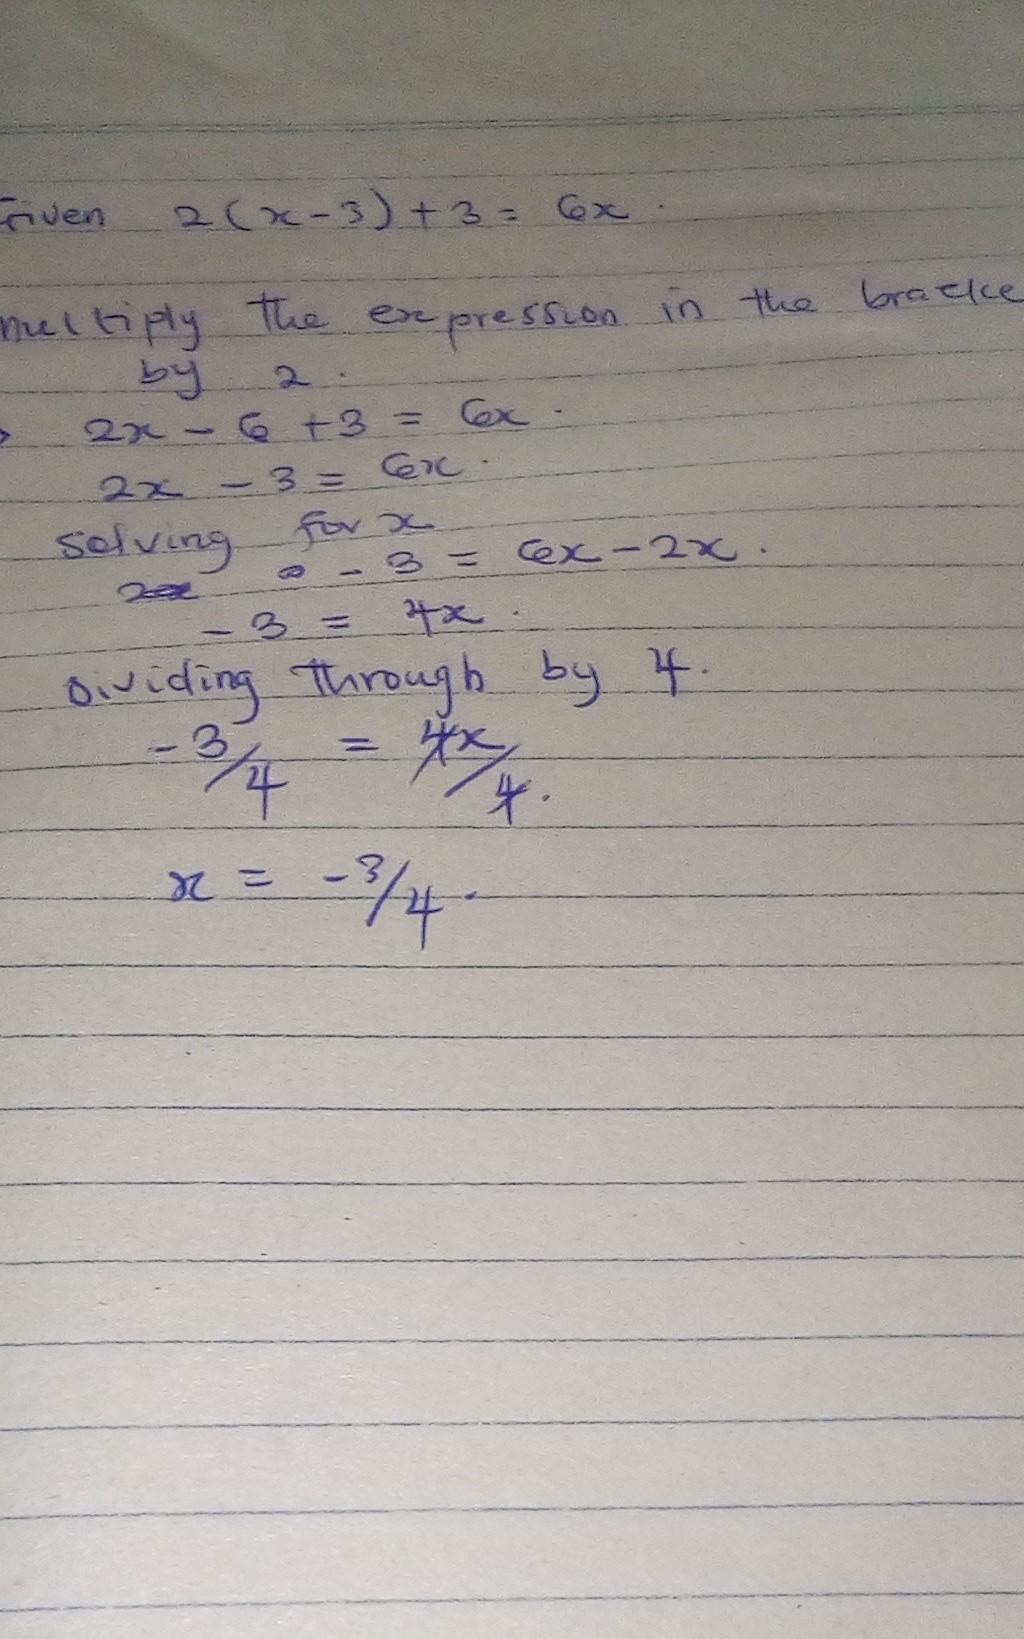 Given 2(x-3)+3 = 6x.
multiply the expression in the bracke
by 2.
2x - 6 + 3 = 6x.
2x - 3 = 6x.
solving for x
0 - 3 = 6x - 2x.
- 3 = 4x.
Dividing through by 4.
-3/4 = 4x/4.
x = -3/4.